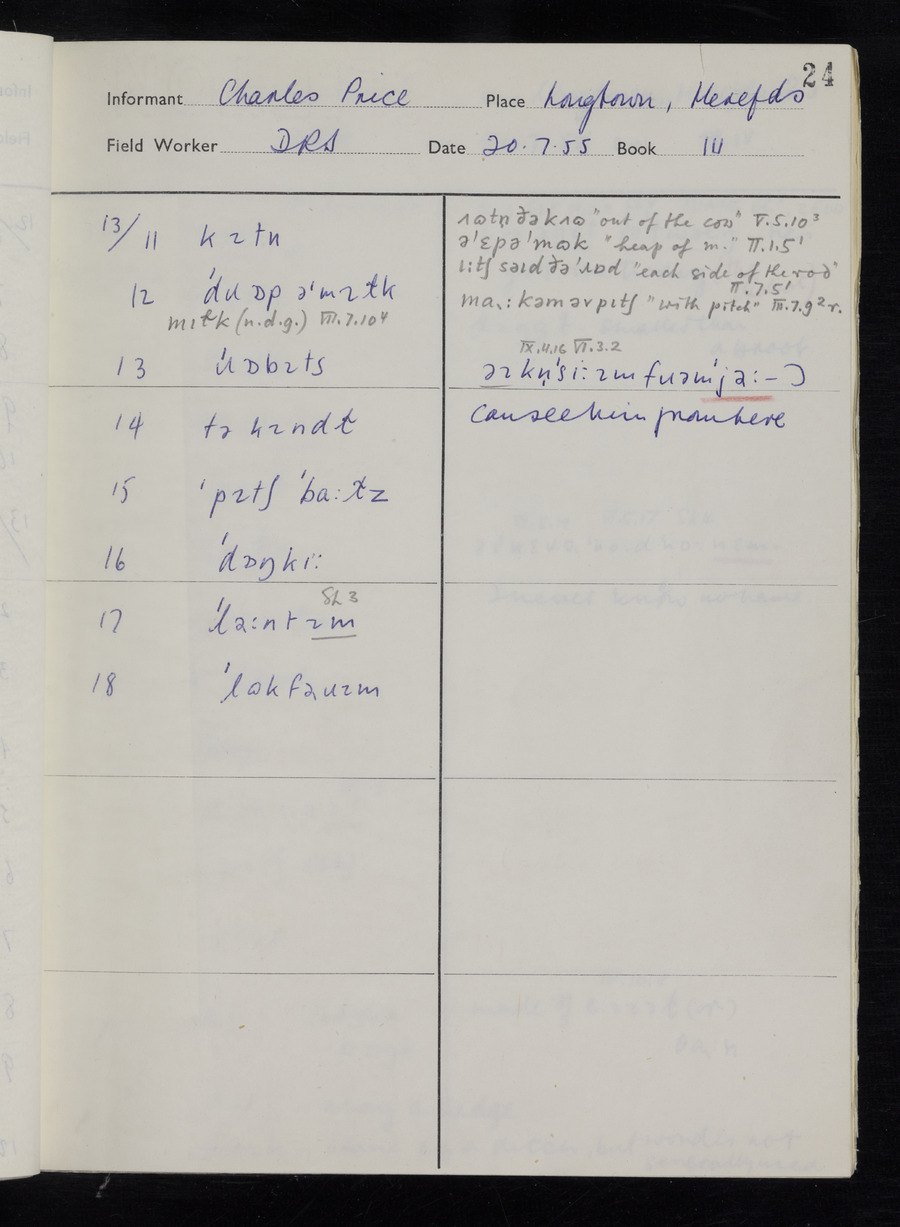 24
Informant Charles Price Place Longtown, Herefds
Field Worker DRS Date 20.7.55 Book III
13/11 kɪtn
12 ˈdɹɒp əˈmɪɫk
mɪɫk (n.d.g.) VII.7.10⁴
13 ˈɹɒbɪts
14 tə hɪndɫ
15 ˈpɪtʃ ˈbaːɫz
16 ˈdɒŋkiː
17 ˈləːntɪm SL 3
18 ˈlɷkfəɹɪm
ɹɷtn̩ ðəkɹɷ "out of the cow" V.5.10³
əˈɛpəˈmɷk "heap of m." II.1.5¹
iːtʃ səɪd ðəˈɹɒd "each side of the rod"
II.7.5¹
kəmərpɪtʃ "with pitch" III.7.9²·r.
IX.4.16 VI.3.2
əɪkn̩ˈsiːɪm fɹəmˈjəː–Ɔ
can see him from here